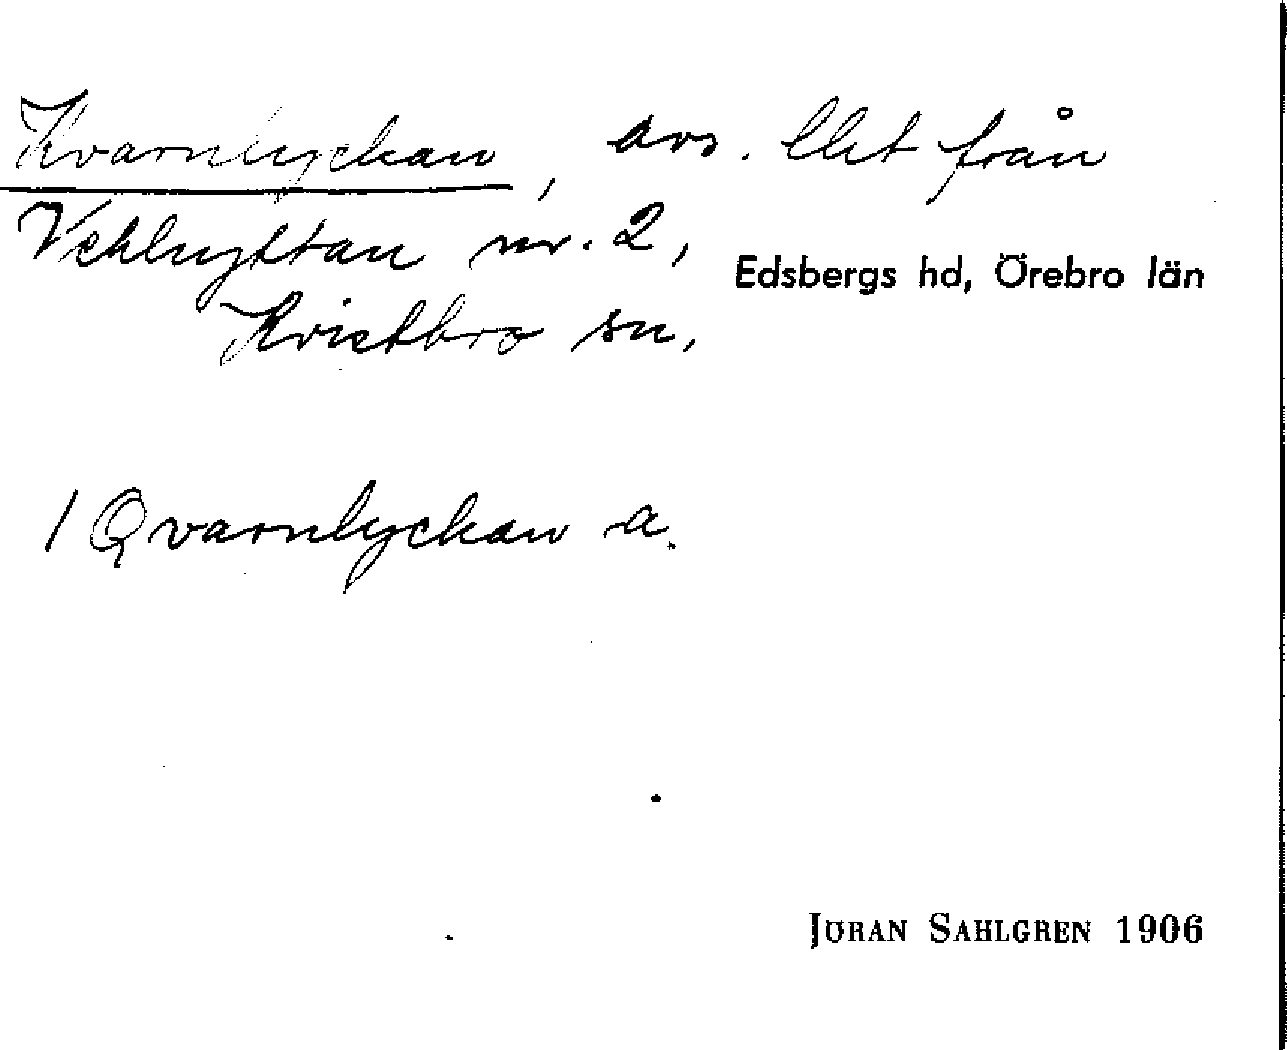 Kvarnlyckan, avs. lht från
Vekhyttan nr. 2,
Edsbergs hd, Örebro län
Kvistbro sn,
1 Qvarnlyckan a.
JÖRAN SAHLGREN 1906